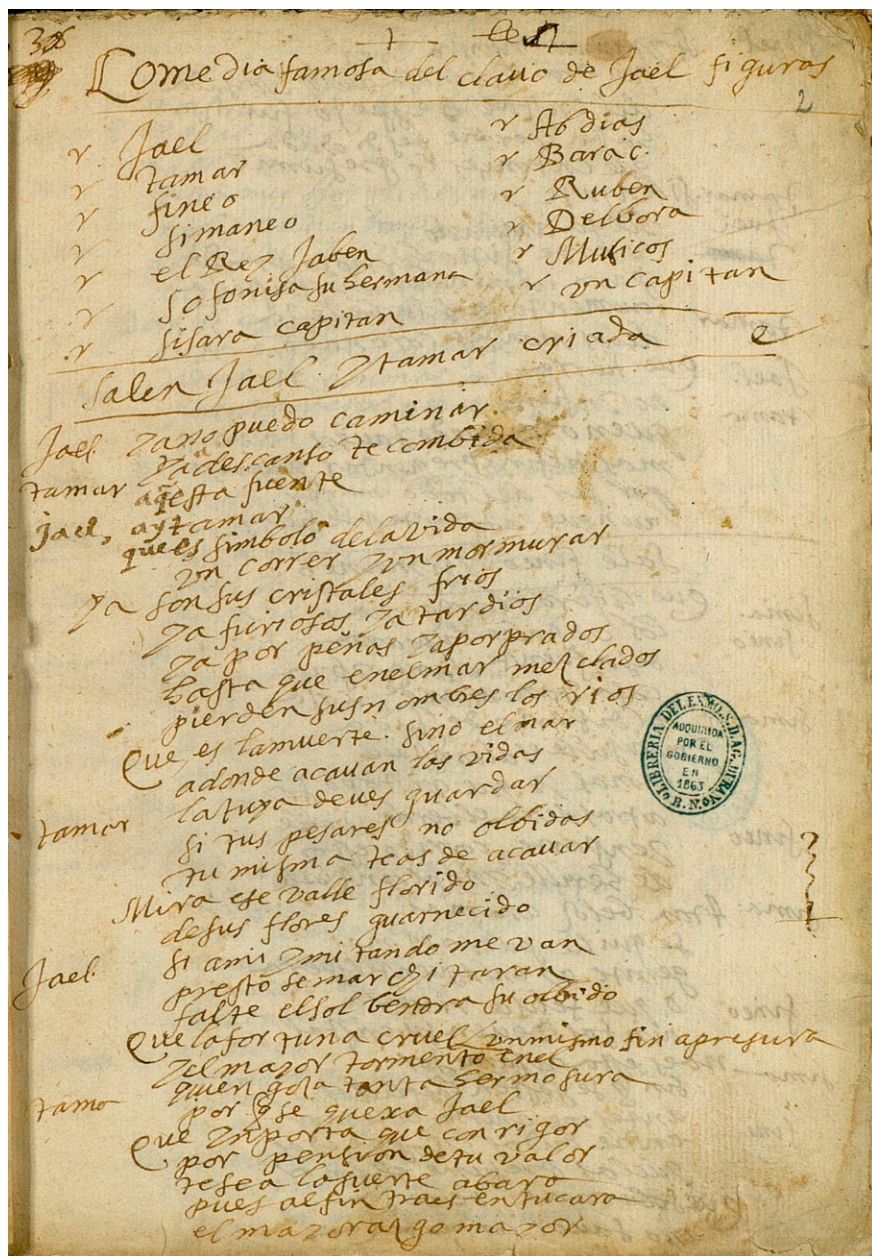 36
Comedia famosa del clauo de Jael figuras
2
r Jael
r tamar
r fineo
r simaneo
r el Rey Jaben
r Sofonisa su hermana
r sisara capitan
r Abdias
r Barac.
r Ruben
r Delbora
r Musicos
r vn capitan
Salen Jael y tamar criada
Jael yano puedo caminar
tamar ya descanso te combida
aqesta fuente
Jael, ay tamar
que es simbolo de la vida
vn correr y vn mormurar
ya son sus cristales frios
ya furiosos ya tardios
ya por peñas ya por prados
hasta que en el mar mezclados
pierden sus nombres los rios
Que es la muerte. sino el mar
adonde acauan las vidas
tamar la tuya deues guardar
si tus pesares no olbidas
tu misma te as de acauar
Mira ese valle florido
de sus flores guarnecido
Jael. si ami ymitando me van
presto se marchitaran
falte el sol bendra su olbido
Que la fortuna cruel vn mismo fin apresura
y el mayor tormento en el
quien goza tanta hermosura
tamo por q se quexa Jael
Que ynporta que con rigor
por pension de tu valor
te sea la suerte abara
pues al fin traes en tu cara
el mayorazgo mayor
LIBRERIA DEL EXMO. S. D. AG. DURAN
ADQUIRIDA
POR EL
GOBIERNO
EN
1863
B. N.